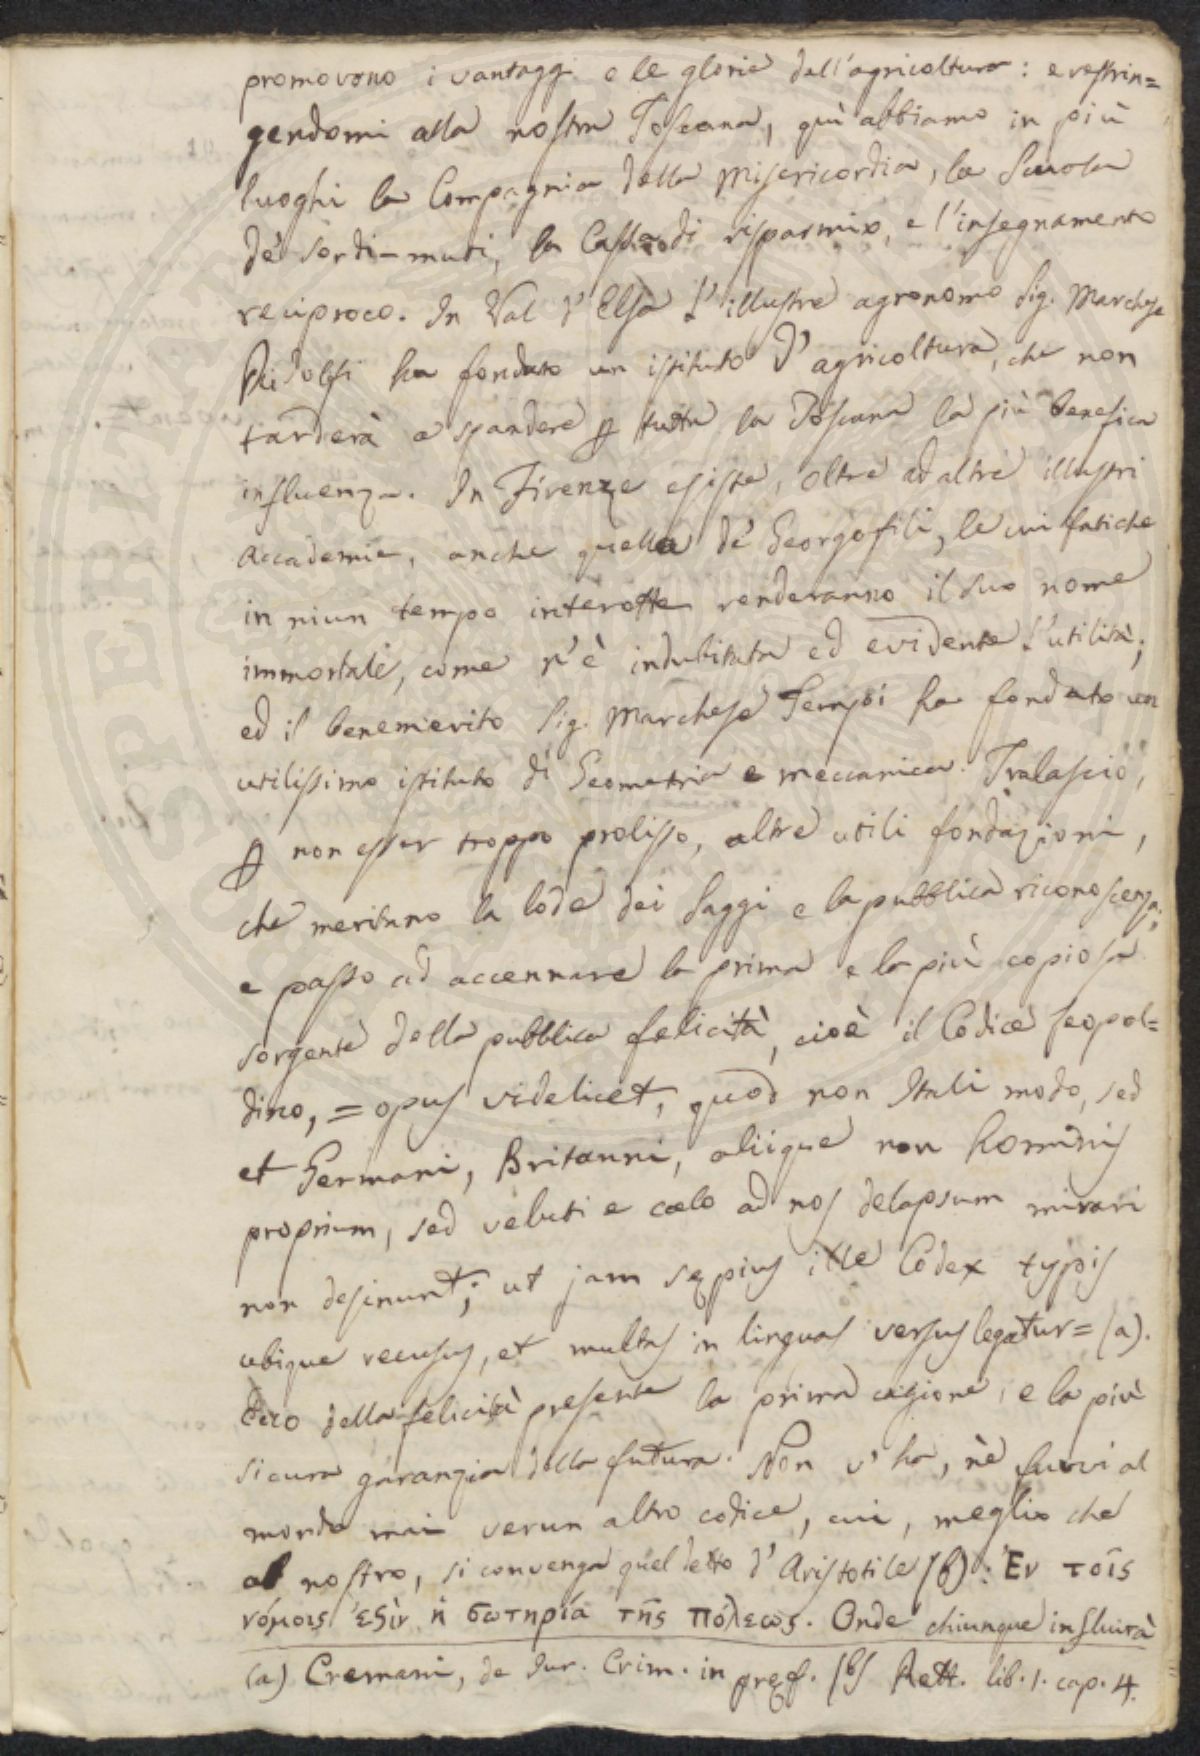 promovono i vantaggi e le glorie dell'agricoltura: e restrin=
gendomi alla nostra Toscana, quì abbiamo in più
luoghi la Compagnia della Misericordia, la Scuola
de' sordi-muti, la Cassa di risparmio, e l'insegnamento
reciproco. In Val d'Elsa l'illustre agronomo Sig. Marchese
Ridolfi ha fondato un istituto d'agricoltura, che non
tarderà a spandere p tutta la Toscana la più benefica
influenza. In Firenze esiste, oltre ad altre illustri
Accademie, anche quella de' Georgofili, le cui fatiche
in niun tempo interotte renderanno il suo nome
immortale, come n'è indubitata ed evidente l'utilità;
ed il benemerito Sig. Marchese Tempi ha fondato un
utilissimo istituto di Geometria e meccanica. Tralascio,
p non esser troppo prolisso, altre utili fondazioni,
che meritano la lode dei Saggi e la pubblica riconoscenza;
e passo ad accennare la prima e la più copiosa
sorgente della pubblica felicità, cioè il Codice Leopol=
dino, = opus videlicet, quod non Itali modo, sed
et Germani, Britanni, aliique non hominis
proprium, sed veluti e cælo ad nos delapsum mirari
non desinunt; ut jam sępius ille Codex typis
ubique recusus, et multas in linguas versus legatur = (a).
Ecco della felicità presente la prima cagione, e la più
sicura garanzia della futura. Non v'ha, nè fuvvi al
mondo mai verun altro codice, cui, meglio che
al nostro, si convenga quel detto d'Aristotile (b): Ἐν τοῖς
νόμοις ἐστὶν ἡ σωτηρία τῆς πόλεως. Onde chiunque influirà
(a) Cremani, de Jur. Crim. in pręf. (b) Rett. lib. 1. cap. 4.
SPERITAT